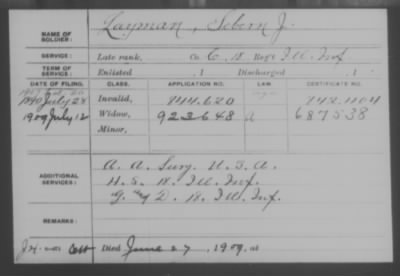 NAME OF SOLDIER: Layman, Sebern J.
SERVICE: Late rank, Co. C, 18 Reg't Ill Inf
TERM OF SERVICE: Enlisted , 1 Discharged , 1
DATE OF FILING. CLASS. APPLICATION NO. LAW. CERTIFICATE NO.
1890 July 28 Invalid, 844.620 742.1104
1909 July 12 Widow, 923648 a 687538
Minor,
ADDITIONAL SERVICES: A. A. Surg. U.S.A.
H.S. 18. Ill. Inf.
G. & D. 18. Ill. Inf.
REMARKS:
Died June 27, 1909, at